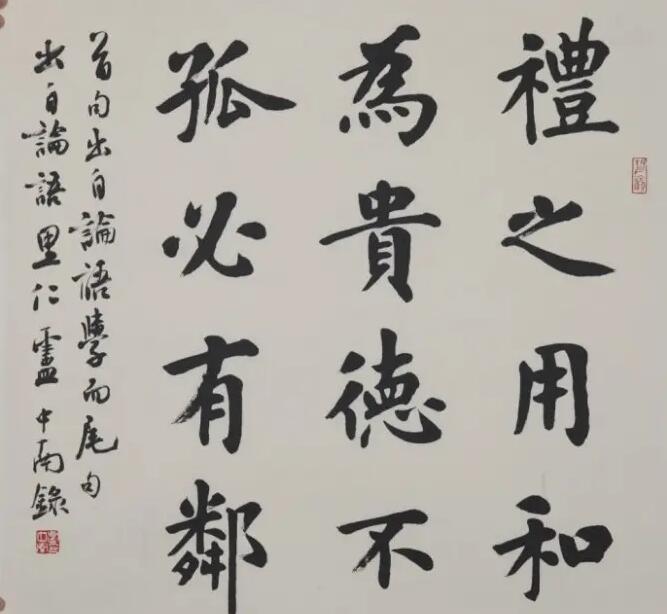 禮之用和
為貴德不
孤必有鄰
首句出自論語學而尾句
出自論語里仁盧中南錄